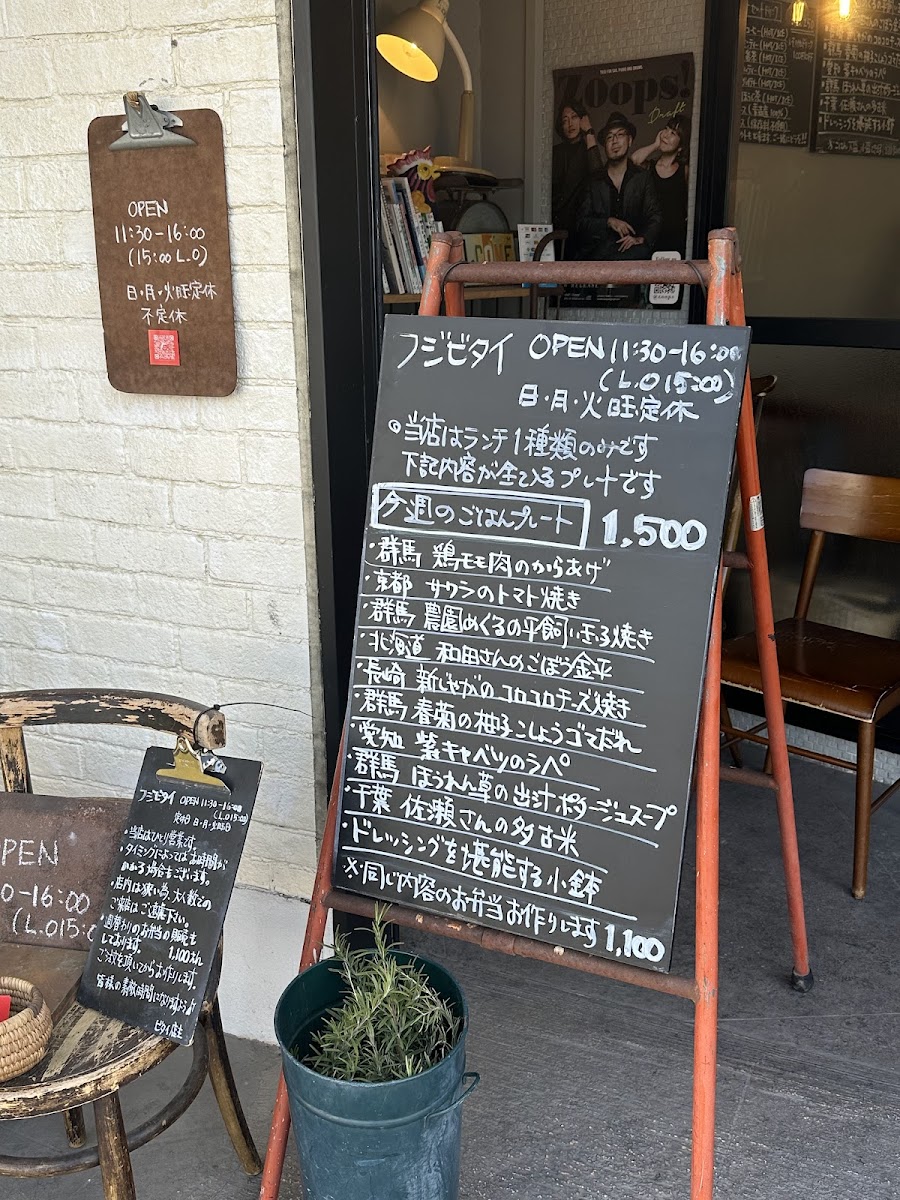 OPEN
11:30-16:00
(15:00 L.O)
日・月・火旺定休
不定休
Zoops!
Draft
フジビタイ OPEN 11:30-16:00
(L.O 15:00)
日・月・火旺定休
◎当店はランチ1種類のみです
下記内容が全て入るプレートです
今週のごはんプレート 1,500
・群馬 鶏モモ肉のからあげ
・京都 サワラのトマト焼き
・群馬 農園めぐるの平飼いたまろ焼き
・北海道 和田さんのごぼう金平
・長崎 新じゃがのコロコロチーズ焼き
・群馬 春菊の柚子こしょうゴマだれ
・愛知 紫キャベツのラペ
・群馬 ほうれん草の出汁ポタージュスープ
・千葉 佐瀬さんの多古米
・ドレッシングを堪能する小鉢
※同じ内容のお弁当お作りします 1,100
フジビタイ OPEN 11:30-16:00
(L.O 15:00)
定休日 日・月・火旺日
・当店はひとり営業です。
・タイミングによってはお時間が
かかる場合もございます。
・店内は狭い為、大人数での
ご来店はご遠慮下さい。
・週替わりのお弁当の販売も
しております。 1,100
ご注文を頂いてからお作りします。
皆様の素敵な時間になりますよう
ビタイ店主
PEN
0-16:00
(L.O15:0